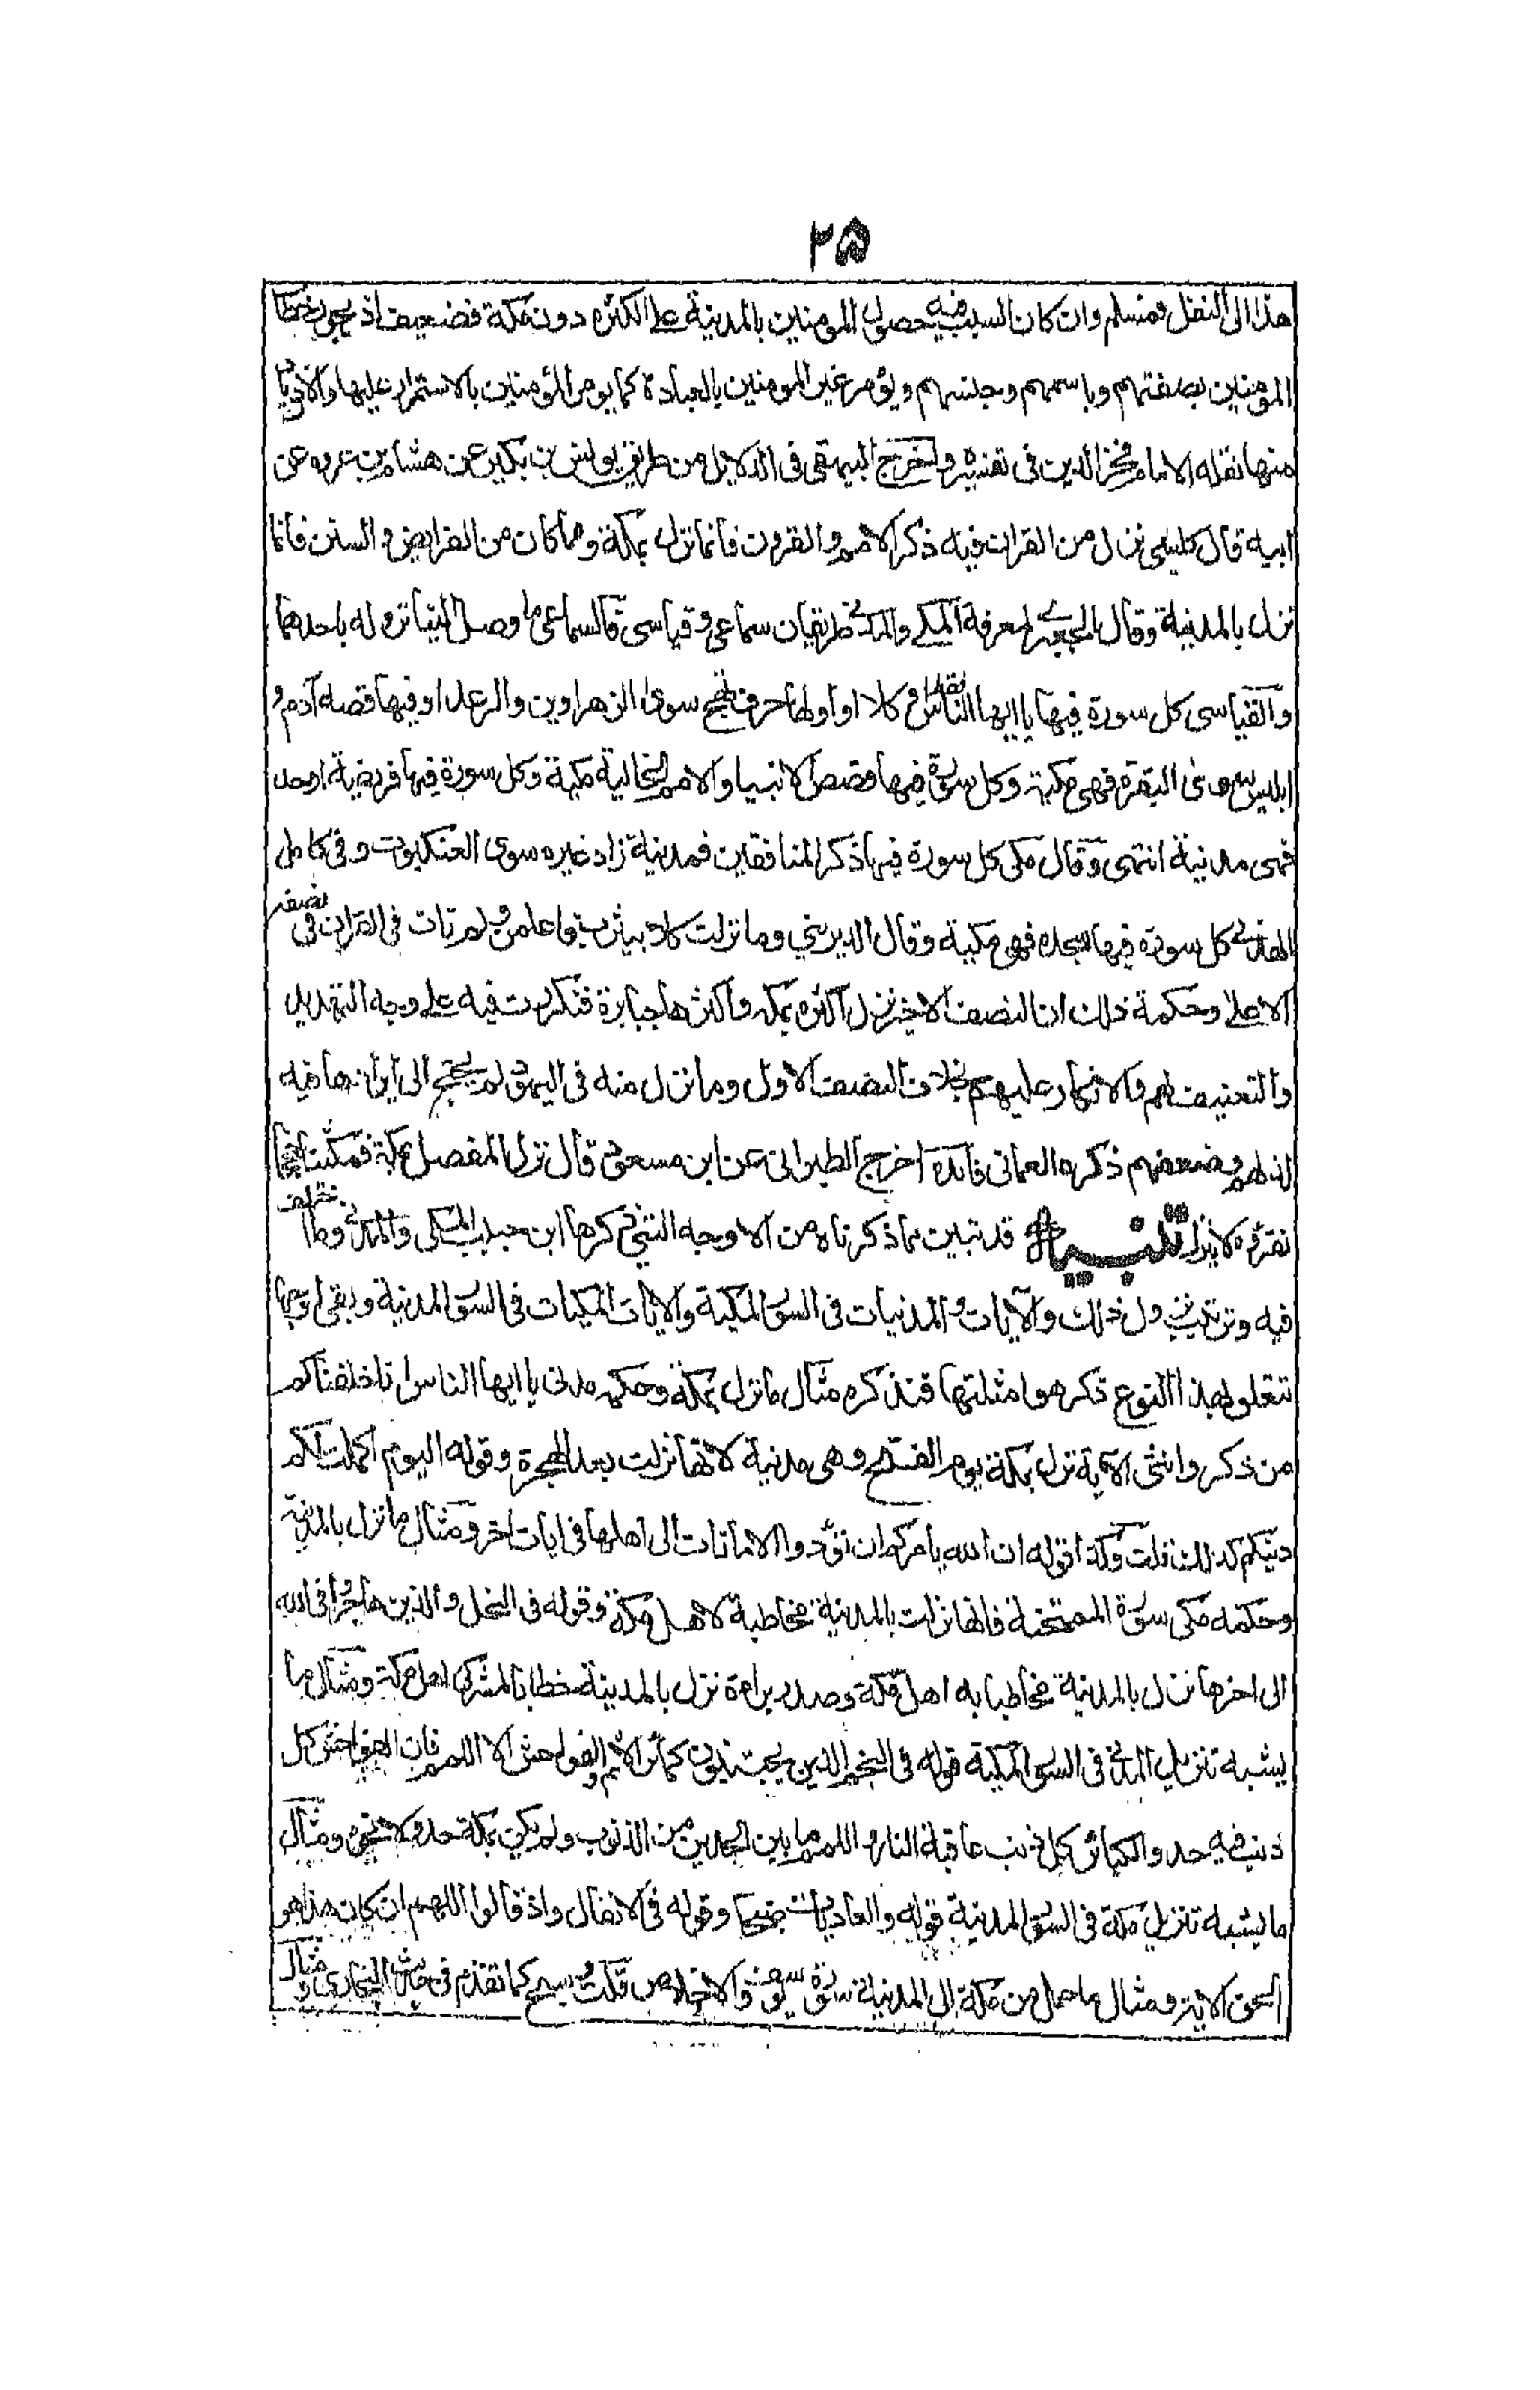 ٢٥
هذا الى النقل فمسلم وان كان السبب فيه حصول المومنين بالمدينة على الكثره دون مكة فضعيف اذ يجوز خطاب
المومنين بصفتهم وباسمهم وجنسهم ويؤمر غير المومنين بالعبادة كما يومر المؤمنين بالاستمرار عليها والازدياد
منها نقله الامام فخر الدين فى تفسيره واخرج البيهقى فى الدلايل من طريق يونس بن بكير عن هشام بن عروه عن
ابيه قال كل شى نزل من القران فيه ذكر الامم والقرون فانما نزل بمكة وما كان من الفرايض والسنن فانما
نزل بالمدينة وقال الجعبرى لمعرفة المكى والمدنى طريقان سماعى وقياسى فالسماعى ما وصل الينا نزوله باحدهما
والقياسى كل سورة فيها يا ايها الناس فقط او كلا او اولها حرف تهج سوى الزهراوين والرعد او فيها قصة آدم و
ابليس سوى البقره فهى مكية وكل سورة فيها قصص الانبيا والامم الخالية مكية وكل سورة فيها فريضة او حد
فهى مدنية انتهى وقال مكى كل سورة فيها ذكر المنافقين فمدنية زاد غيره سوى العنكبوت وفى كامل
الهذلى كل سورة فيها سجده فهى مكية وقال الديرينى وما نزلت كلا بيثرب فاعلمن ولم تات فى القران فى نصفه
الاعلى وحكمة ذلك ان النصف الاخير نزل اكثره بمكه واكثرها جبابرة فتكررت فيه على وجه التهديد
والتعنيف لهم والانكار عليهم بخلاف النصف الاول وما نزل منه فى اليهود لم يحتج الى ايرادها فيه
لذلهم وضعفهم ذكره العمانى فائدة اخرج الطبرانى عن ابن مسعود قال نزل المفصل بمكة فمكثنا حججا
نقرؤه لا ينزل تنبيه قد تبين بما ذكرناه من الاوجه التى ذكرها ابن حبيب المكى والمدنى وما اختلف
فيه وترتيب نزول ذلك والآيات المدنيات فى السور المكية والايات المكيات فى السور المدنية وبقى اوجه
تتعلق بهذا النوع ذكر هو امثلتها فنذكره مثال ما نزل بمكة وحكمه مدنى يا ايها الناس انا خلقناكم
من ذكر وانثى الآية نزل بمكة يوم الفتح وهى مدنية لانها نزلت بعد الهجرة وقوله اليوم اكملت لكم
دينكم كذلك قلت وكذا قوله ان الله يامركم ان تؤدوا الامانات الى اهلها فى ايات اخر ومثال ما نزل بالمدينة
وحكمه مكى سورة الممتحنة فانها نزلت بالمدينة مخاطبة لاهل مكة وقوله فى النحل والذين هاجروا فى الله
الى اخرها نزل بالمدينة مخاطبا به اهل مكة وصدر براءة نزل بالمدينة خطابا لمشركى اهل مكة ومثال ما
يشبه تنزيل المدنى فى السور المكية قوله فى النجم الذين يجتنبون كبائر الاثم والفواحش الا اللمم فان الفواحش كل
ذنب فيه حد والكبائر كل ذنب عاقبة النار واللمم ما بين الحدين من الذنوب ولم يكن بمكة حد ولا نحوه ومثال
ما يشبه تنزيل مكة فى السور المدنية قوله والعاديات ضبحا وقوله فى الانفال واذ قالوا اللهم ان كان هذا هو
الحق الاية ومثال ما حمل من مكة الى المدينة سورة يوسف والاخلاص قلت وسبح كما تقدم فى حديث البخارى ومثال